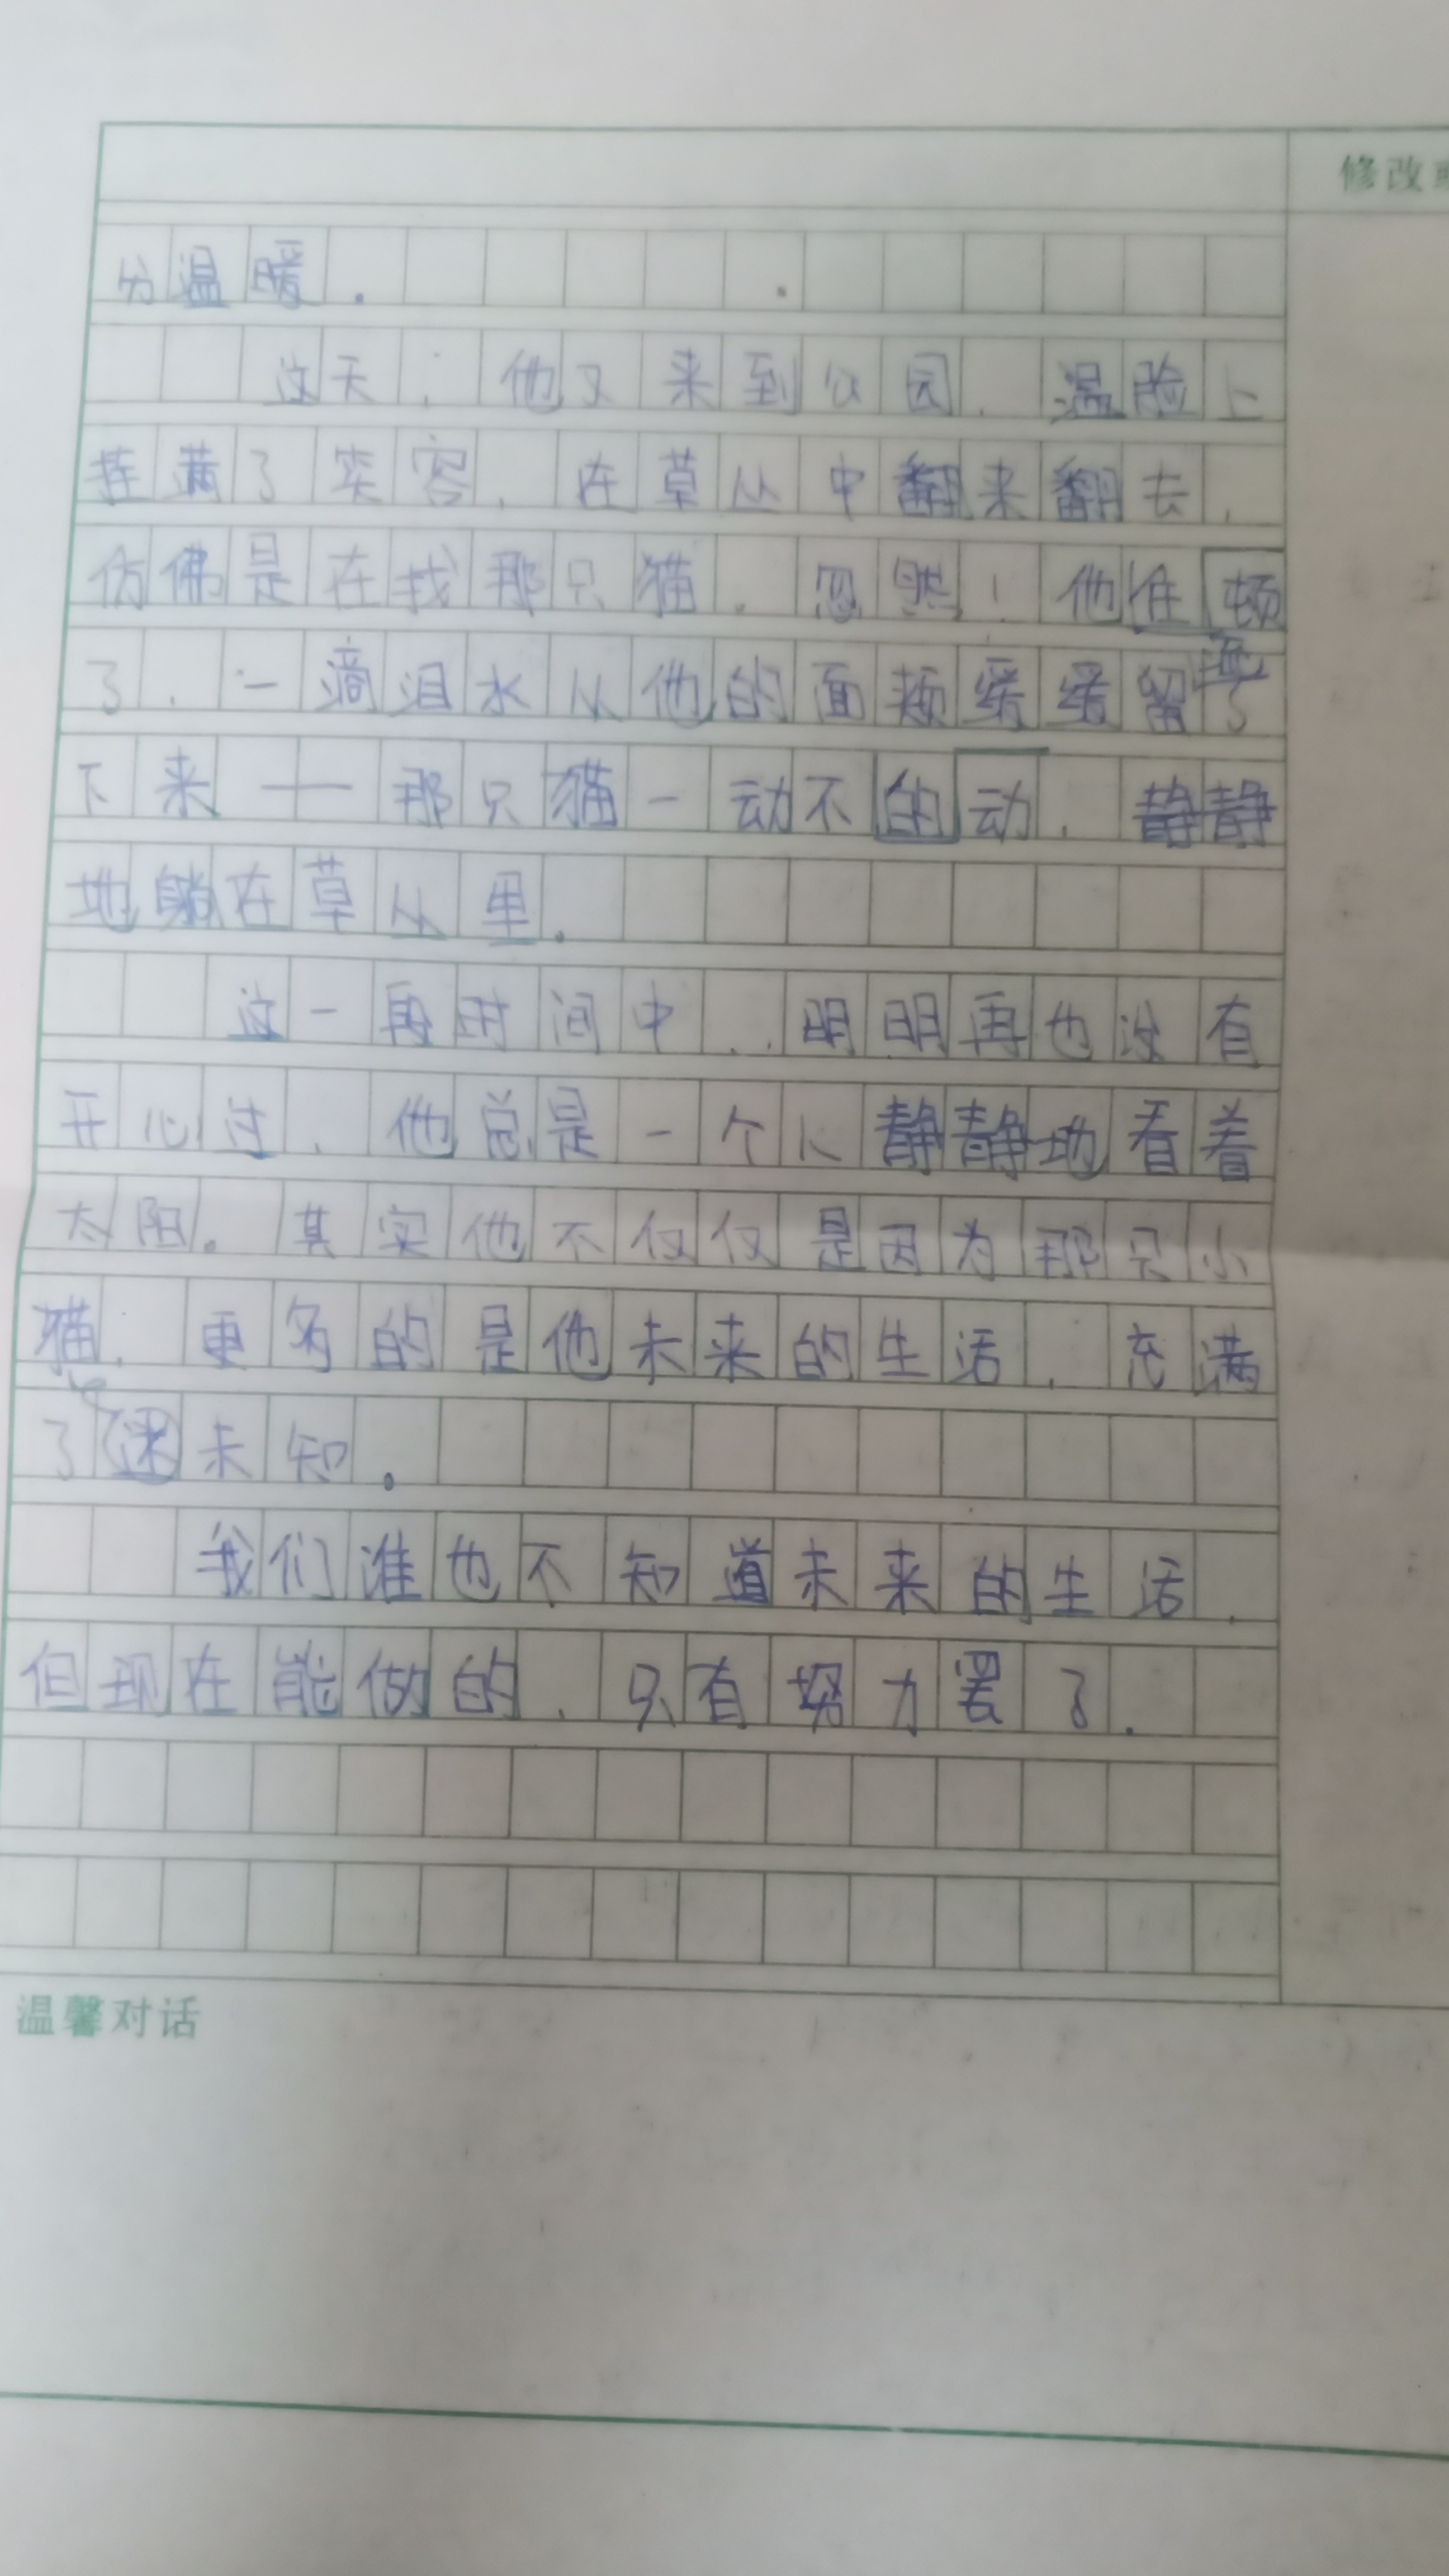 修改
分温暖.
这天,他又来到公园,温脸上
挂满了笑容,在草丛中翻来翻去,
仿佛是在找那只猫.忽然!他住顿
了.一滴泪水从他的面颊缓缓留了
下来——那只猫一动不的动,静静
地躺在草丛里.
这一段时间中,明明再也没有
开心过,他总是一个人静静地看着
太阳。其实他不仅仅是因为那只小
猫,更多的是他未来的生活,充满
了迷未知。
我们谁也不知道未来的生活,
但现在能做的,只有努力罢了.
温馨对话